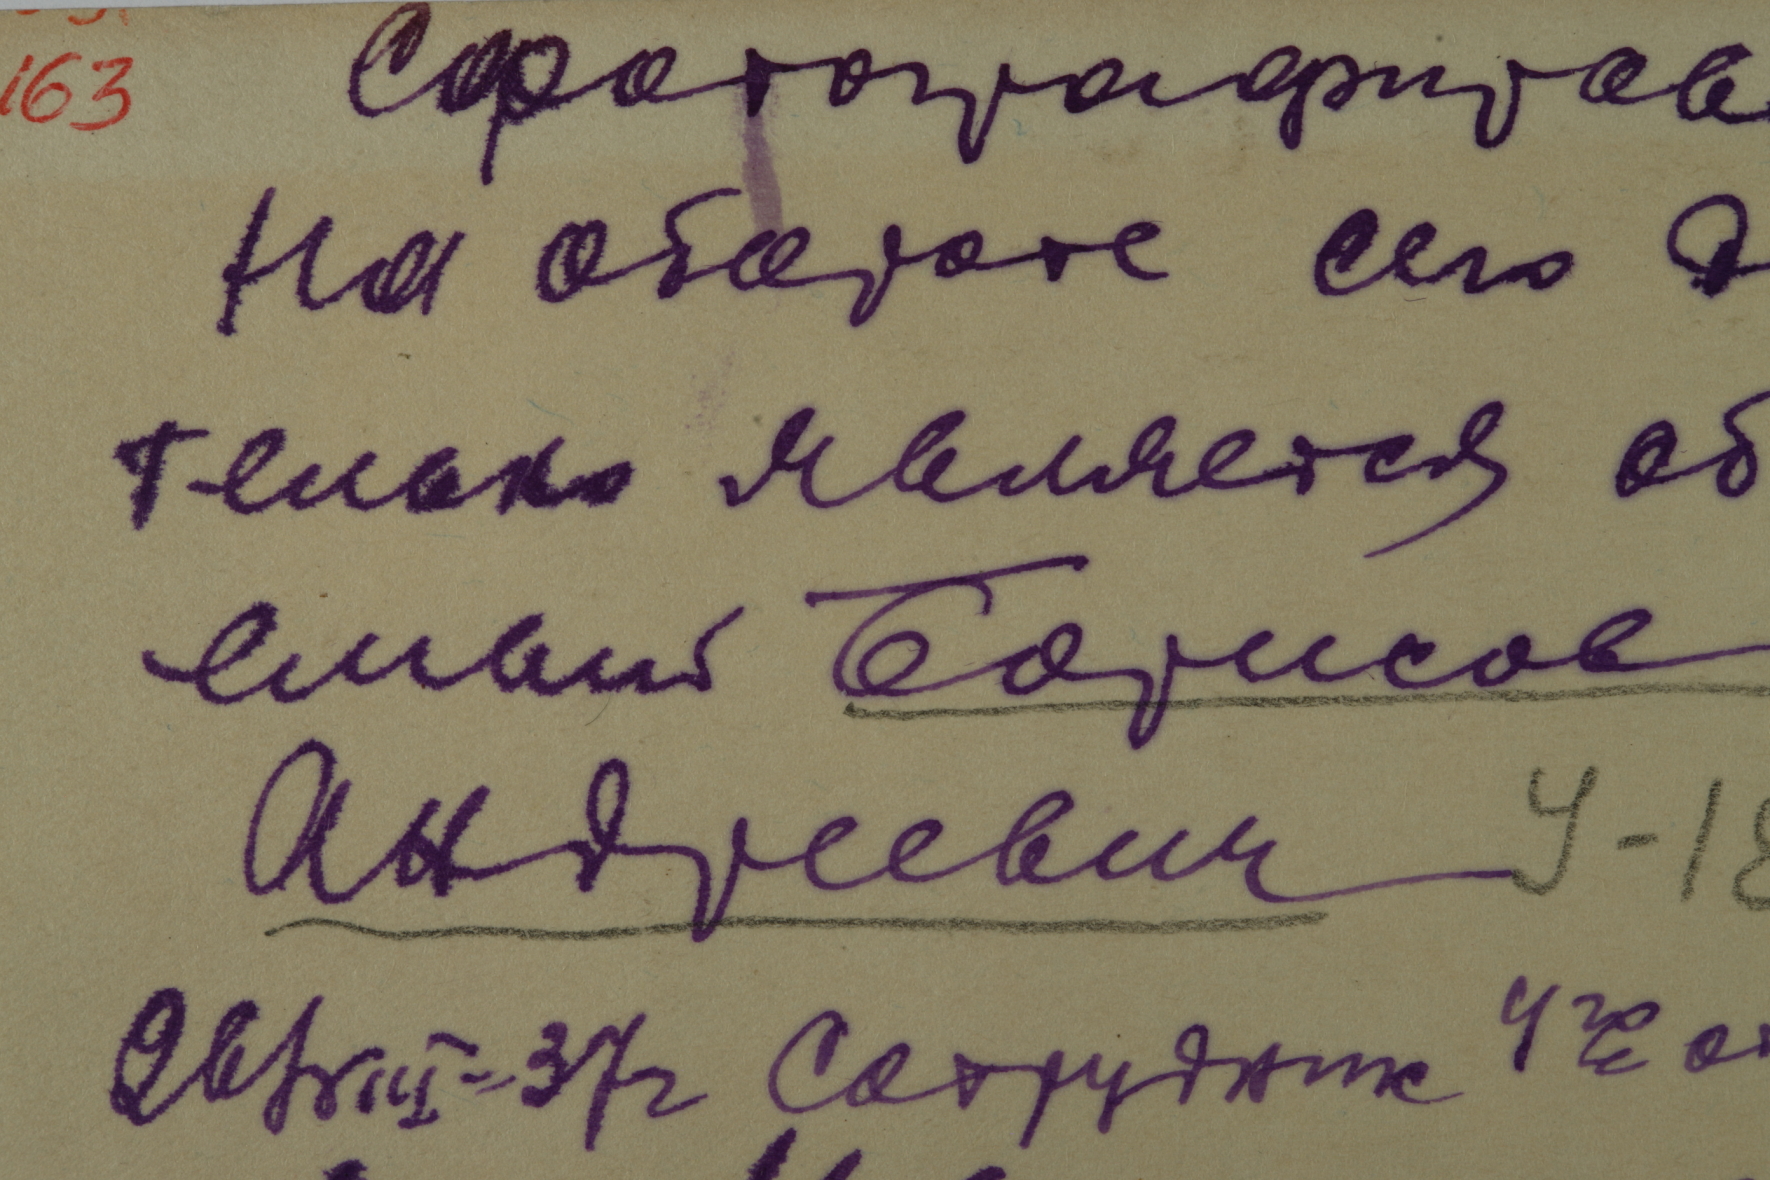 163
Сфотографиров
На обороте сего д
тельно является об
емый Борисов
Андреевич У-18
26/VIII-37г Сотрудник 4го от